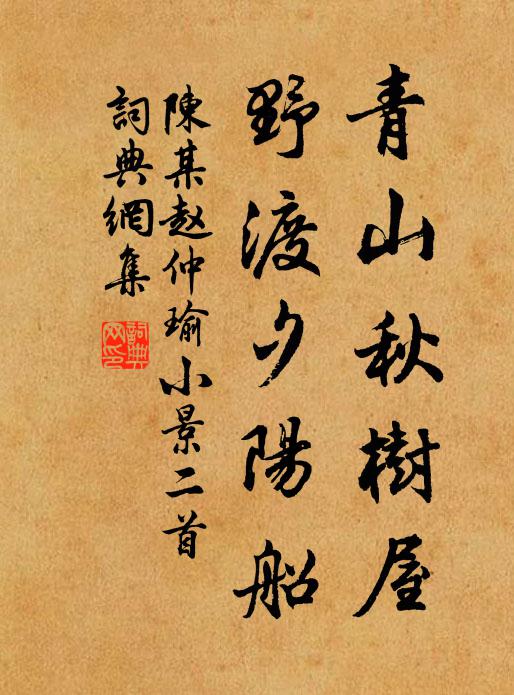 青山秋樹屋
野渡夕陽船
陳某赵仲瑜小景二首
詞典網集
詞典网印